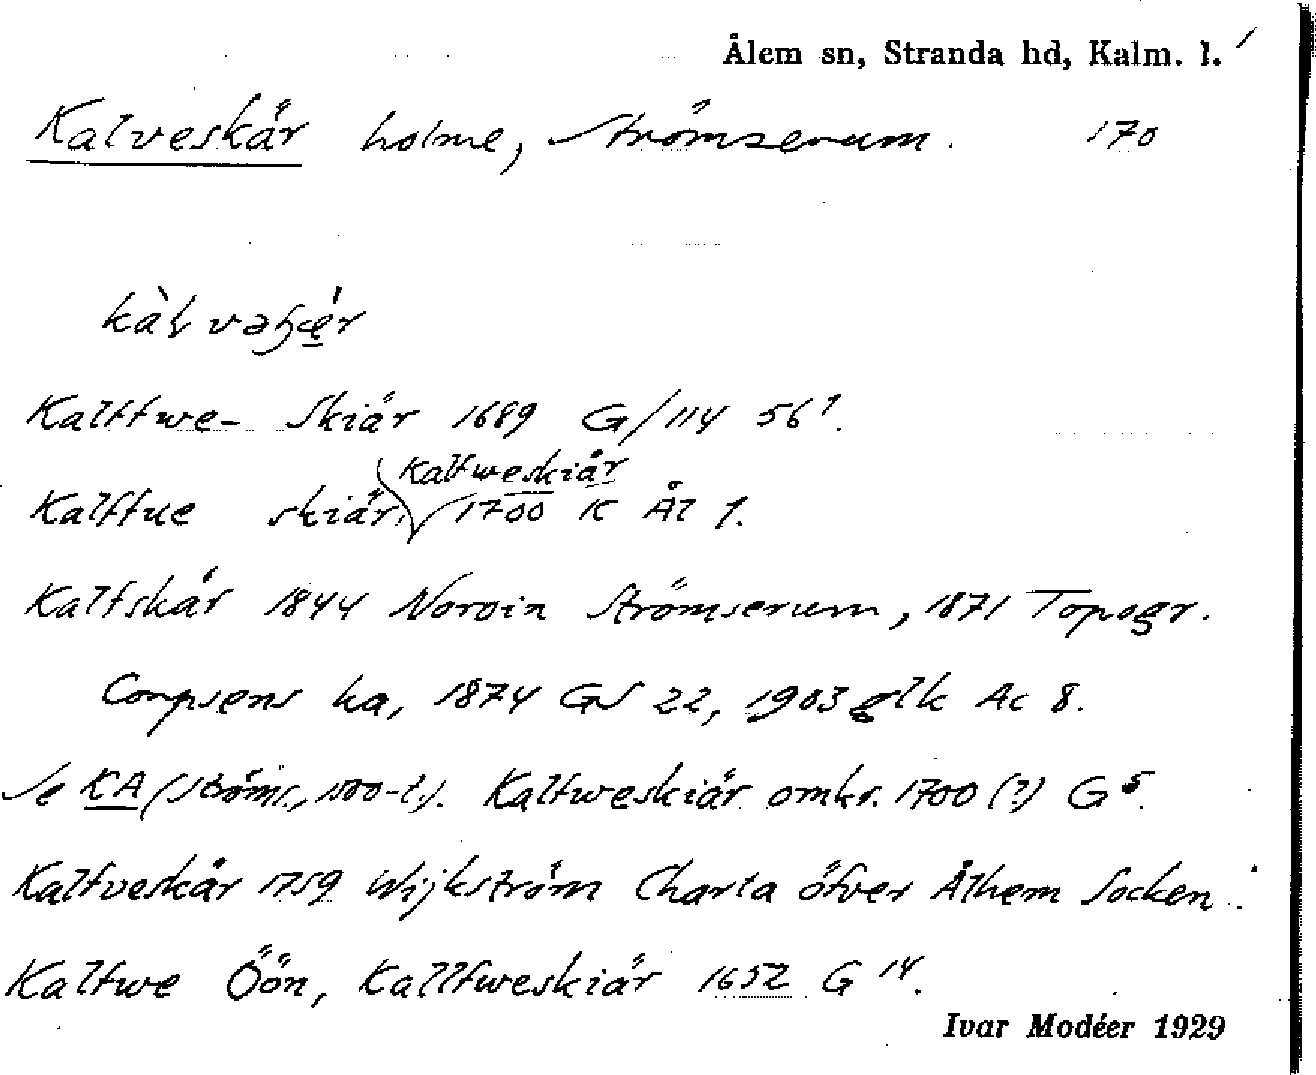 Ålem sn, Stranda hd, Kalm. l.
Kalveskär holme, Strömserum. 170
Kalffwe- Skiär 1689 G/114 56¹.
Kalfweskiär
Kalffue skiär, 1700 K Ål 1.
Kalfskär 1844 Norvin Strömserum, 1871 Topogr.
Corpsens ka, 1874 GS 22, 1903 glk Ac 8.
Se KA (Ströms., 1500-t.). Kalfweskiär omkr. 1700 (?) G⁵.
Kalfveskär 1759 Wijkström Charta öfver Ålhem Socken.
Kalfwe Öön, Kallfweskiär 1652 G 14.
Ivar Modéer 1929